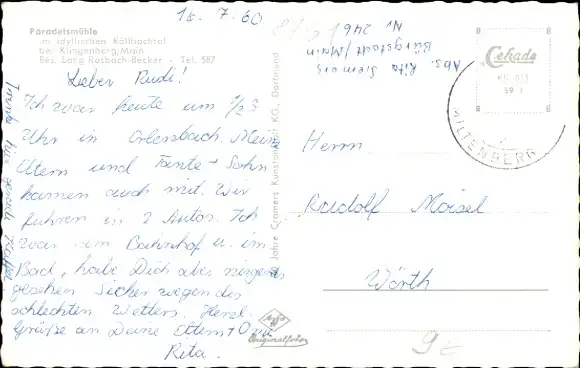 18. 7. 60
Paradeismühle
im idyllischen Röllbachtal
bei Klingenberg/Main
Bes. Lang Rasbach-Becker - Tel. 587
Lieber Rudi!
Ich war heute um 1/2 3
Uhr in Erlenbach. Meine
Eltern und Tante + Sohn
kamen auch mit. Wir
fuhren in 2 Autos. Ich
war am Bahnhof u. im
Bad, habe Dich aber nirgends
gesehen. Sicher wegen des
schlechten Wetters. Herzl.
Grüße an Deine Eltern +
Rita.
Trinke hier gerade Kaffee
Jahre Cramers Kunstanstalt KG., Dortmund
Agfa
Originalfoto
Abs. Rita Siemers
Bürgstadt/Main
Nr 246
Cekade
MILTENBERG
Herrn
Rudolf Moisel
Wörth